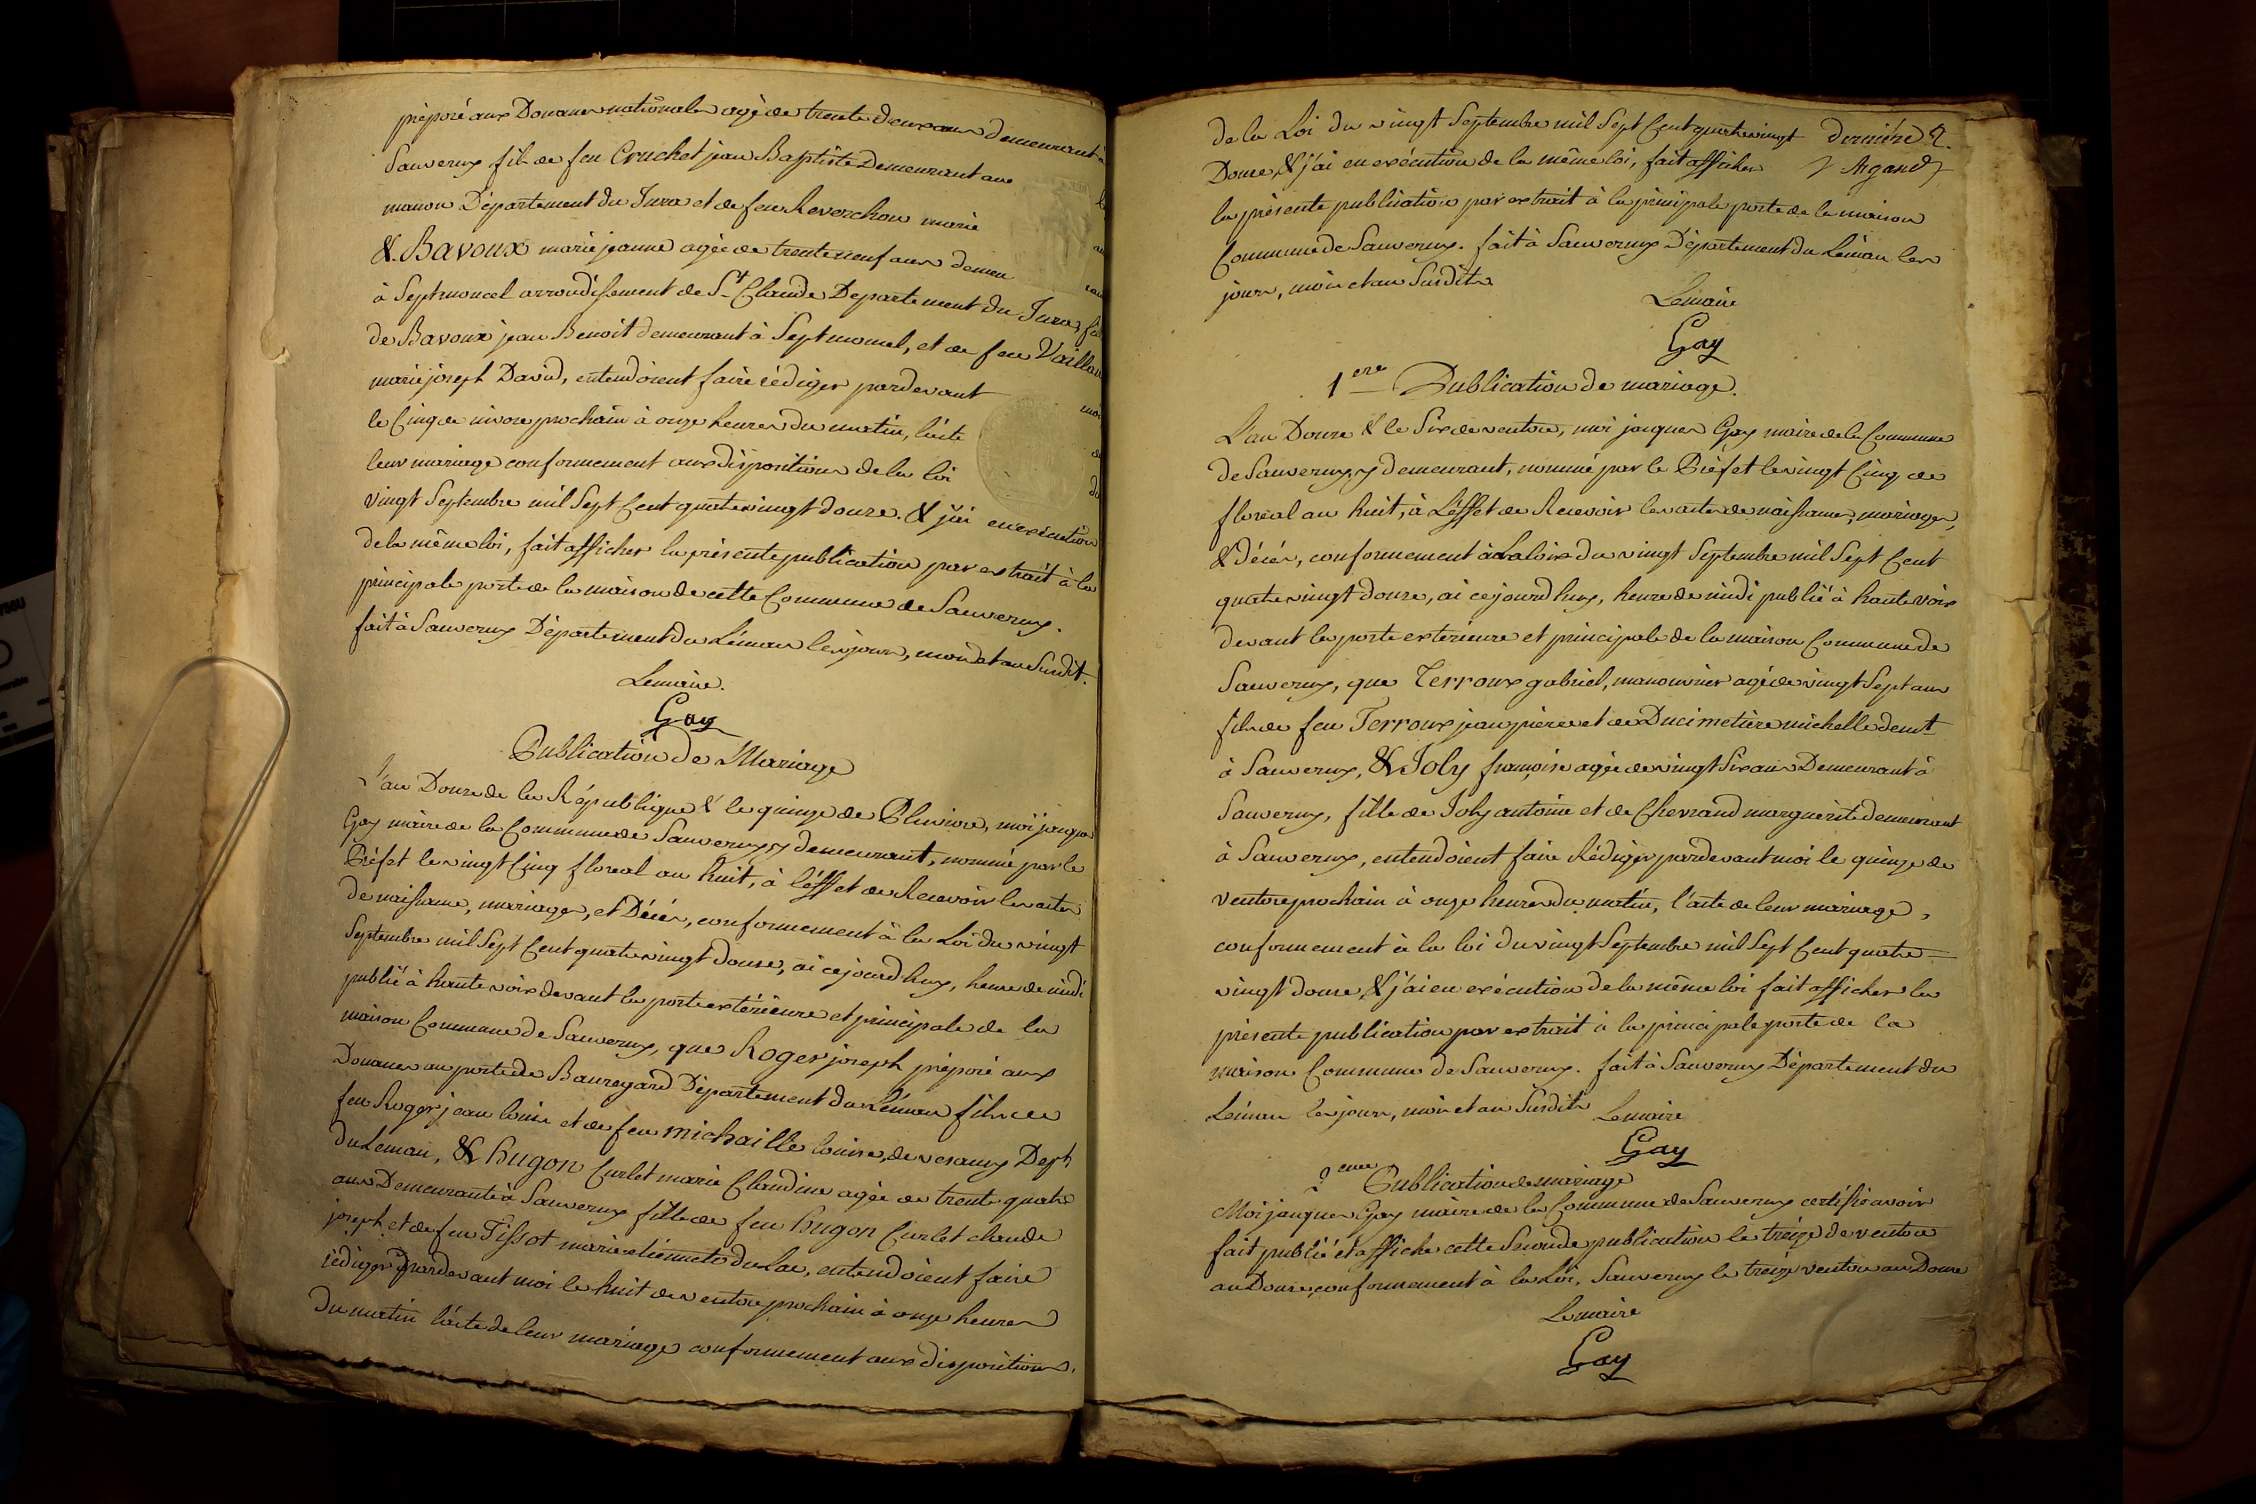 préposé aux Douanes nationales agé de trente deux ans demeurant à
Sauverny fils de feu Cruchet jean Baptiste demeurant au
manon Département du Jura et de feu Reverchon marie
& Bavoux marie jeanne agée de trente neuf ans demeu
à Septmoncel arrondissement de St Claude Département du Jura, fi
de Bavoux jean Benoit demeurant à Septmoncel, et de feu Vaillan
marie joseph David, entendoient faire rédiger pardevant moi
le Cinq de nivose prochain à onze heures du matin, l'acte de
leur mariage conformement aux dispositions de la loi du
vingt Septembre mil Sept Cent quatrevingt douze. & j'ai en exécution
de la même loi, fait afficher la présente publication par extrait à la
principale porte de la maison de cette Commune de Sauverny.
fait à Sauverny Département du Léman les jour, mois et an Susdit.
Lemaire.
Gay
Publication de Mariage
L'an Douze de la République & le quinze de Pluviose, moi jaques
Gay maire de la Commune de Sauverny y demeurant, nommé par le
Préfet le vingt Cinq floreal an huit, à l'éffet de Recevoir les actes
de naissance, mariages, et Décés, conformement à la Loi du vingt
Septembre mil Sept Cent quatrevingt douze, ai cejourd'huy, heure de midi
publié à haute voix devant la porte extérieure et principale de la
maison Commune de Sauverny, que Roger joseph préposé aux
Douanes au poste de Bauregard Département du Léman fils de
feu Roger jean louis et de feu michaille louise, de vesancy Dept
du Leman, & hugon Curlet marie Claudine agée de trente quatre
ans Demeurante à Sauverny fille de feu hugon Curlet claude
joseph et de feu Tissot marie etiennete du Lac, entendoient faire
rédiger pardevant moi le huit de ventose prochain à onze heures
du matin l'acte de leur mariage conformement aux dispositions,
de la Loi du vingt Septembre mil Sept Cent quatrevingt
Douze, & j'ai en exécution de la même loi, fait afficher
la présente publication par extrait à la principale porte de la maison
Commune de Sauverny. fait à Sauverny Département du Léman les
jour, mois et an Susdits
dernière R.
Argand
Lemaire
Gay
1ere Publication de mariage.
L'an Douze & le Six de ventose, moi jaques Gay maire de la Commune
de Sauverny, y demeurant, nommé par le Préfet le vingt Cinq de
floreal an huit, à L'éffet de Recevoir les actes de naissance, mariages,
& décés, conformement à La loix du vingt Septembre mil Sept Cent
quatrevingt douze, ai cejourd'huy, heure de midi publié à haute voix
devant la porte exterieure et principale de la maison Commune de
Sauverny, que Terroux gabriel, manouvrier agé de vingt Sept ans
fils de feu Terroux jean pierre et de Ducimetière michelle demt
à Sauverny, & Joly françoise agée de vingt Six ans Demeurant à
Sauverny, fille de Joly antoine et de Chervand marguerite demeurant
à Sauverny, entendoient faire Rédiger pardevant moi le quinze de
ventose prochain à onze heures du matin, l'acte de leur mariage,
conformement à la loi du vingt Septembre mil Sept Cent quatre
vingt douze, & j'ai en exécution de la même loi fait afficher la
présente publication par extrait à la principale porte de la
maison Commune de Sauverny. fait à Sauverny Département du
Léman les jour, mois et an Susdits
Lemaire
Gay
2eme Publication de mariage
Moi jaques Gay maire de la Commune de Sauverny certifie avoir
fait publié et affiche cette Seconde publication le treize de ventose
an Douze, conformement à la Loi, Sauverny le treize ventose an Douze
Lemaire
Gay